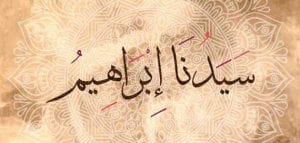 سَيِّدُنَا إِبْرَاهِيمُ